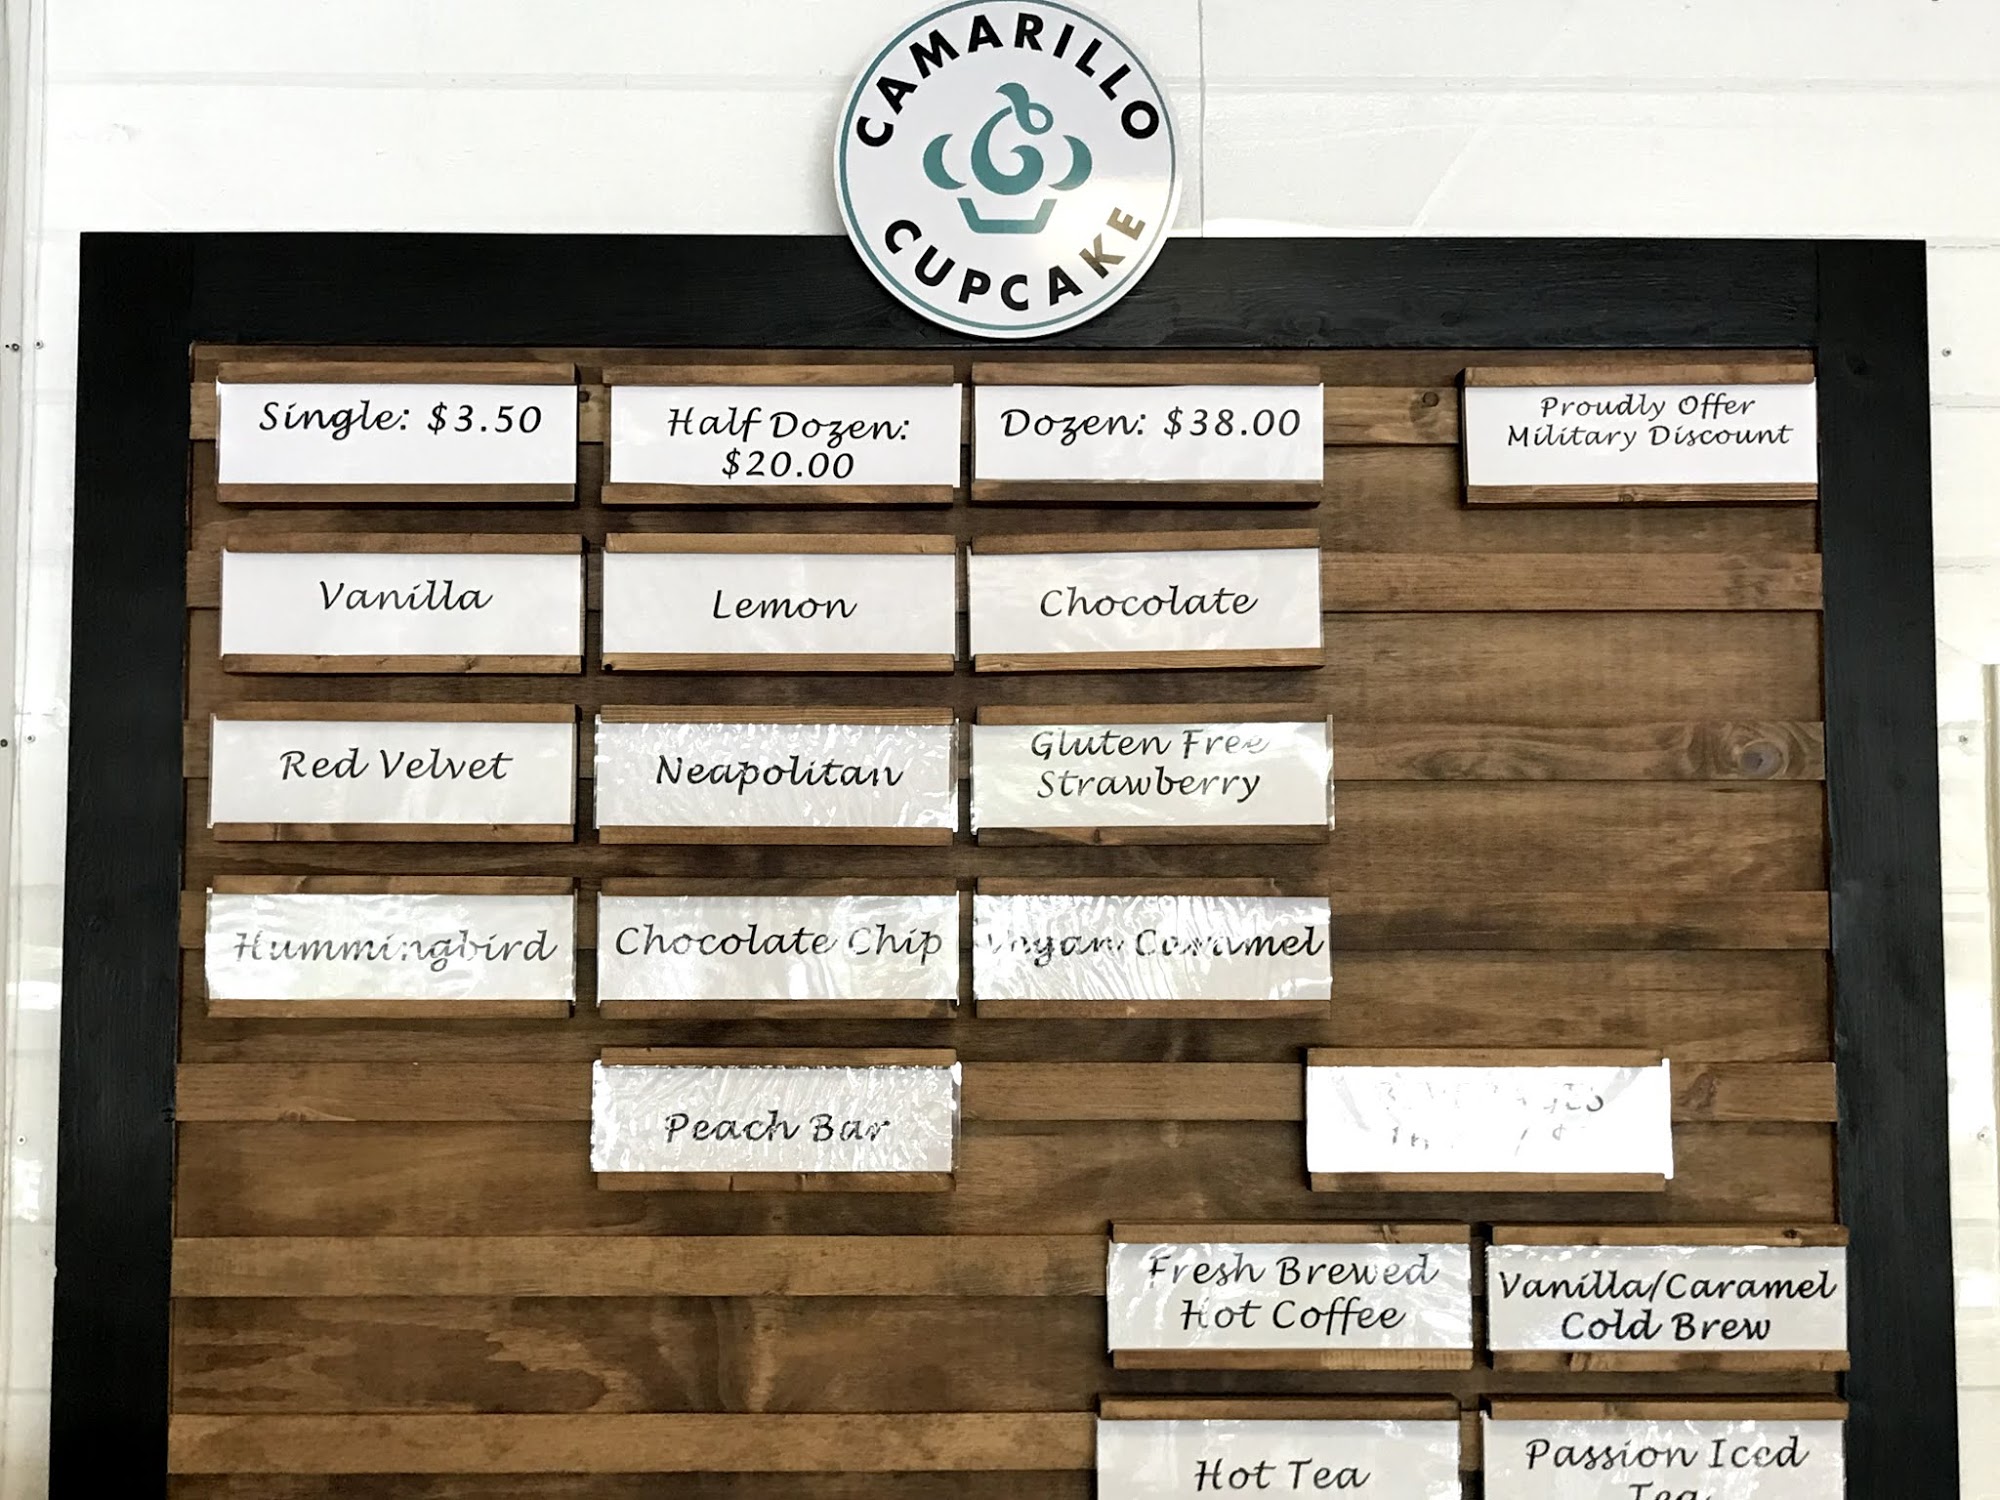 CAMARILLO
CUPCAKE
Single: $3.50
Half Dozen:
$20.00
Dozen: $38.00
Proudly Offer
Military Discount
Vanilla
Lemon
Chocolate
Red Velvet
Neapolitan
Gluten Free
Strawberry
Hummingbird
Chocolate Chip
Vegan Caramel
Peach Bar
Fresh Brewed
Hot Coffee
Vanilla/Caramel
Cold Brew
Hot Tea
Passion Iced
Tea